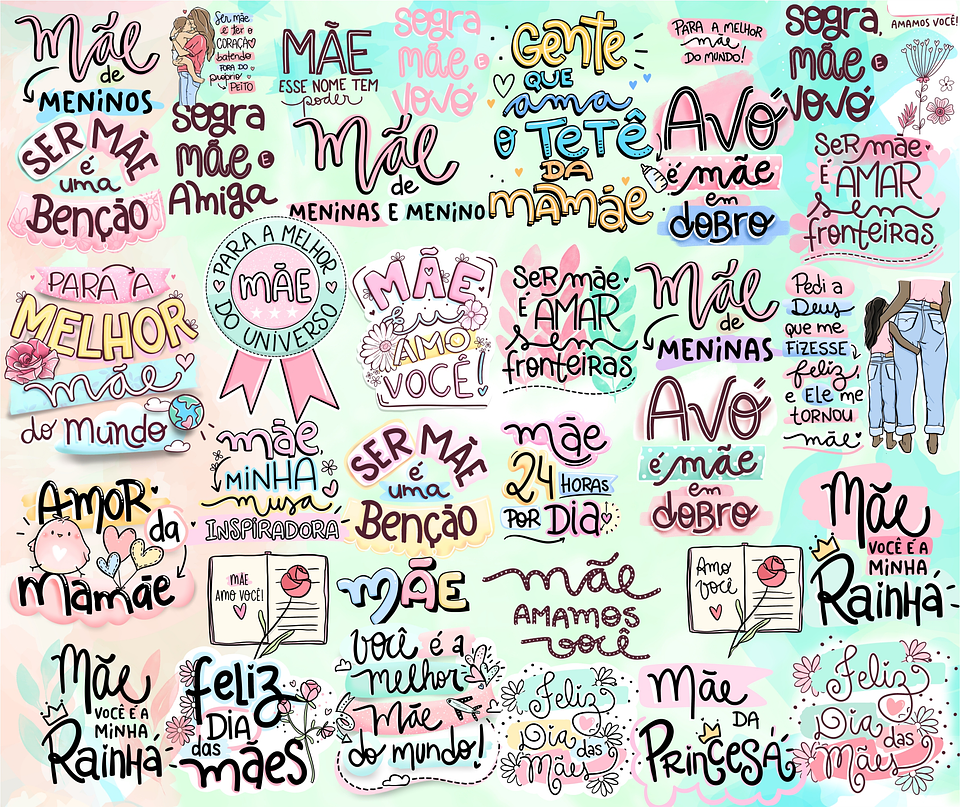 Mãe
de
MENINOS
Ser mãe
é ter o
CORAÇÃO
batendo
FORA DO
próprio
PEITO
MÃE
ESSE NOME TEM
poder
Sogra
mãe E
vovó
Gente
QUE
ama
O TETÊ
DA
mamãe
PARA A MELHOR
mãe
DO MUNDO!
Sogra,
mãe E
vovó
AMAMOS VOCÊ!
SER MÃE
é
uma
Benção
Sogra
mãe E
Amiga
Mãe
de
MENINAS E MENINO
AVÓ
é mãe
em
dobro
Ser mãe
É AMAR
sem
fronteiras
PARA A
MELHOR
mãe
do mundo
PARA A MELHOR
MÃE
DO UNIVERSO
MÃE
Eu
AMO
VOCÊ!
Ser mãe
É AMAR
sem
fronteiras
Mãe
de
MENINAS
Pedi a
Deus
que me
FIZESSE
feliz,
e Ele me
TORNOU
mãe
mãe
MINHA
musa
INSPIRADORA
SER MÃE
é
uma
Benção
mãe
24 HORAS
POR DIA
AVÓ
é mãe
em
dobro
AMOR
da
mamãe
MÃE
AMO VOCÊ!
MÃE
mãe
AMAMOS
você
Amo
você
Mãe
VOCÊ É A
MINHA
RAINHA
Mãe
VOCÊ É A
MINHA
RAINHA
feliz
DIA
das
mães
Você é a
melhor
Mãe
do mundo!
Feliz
Dia das
Mães
Mãe
DA
PRINCESA
Feliz
Dia das
Mães